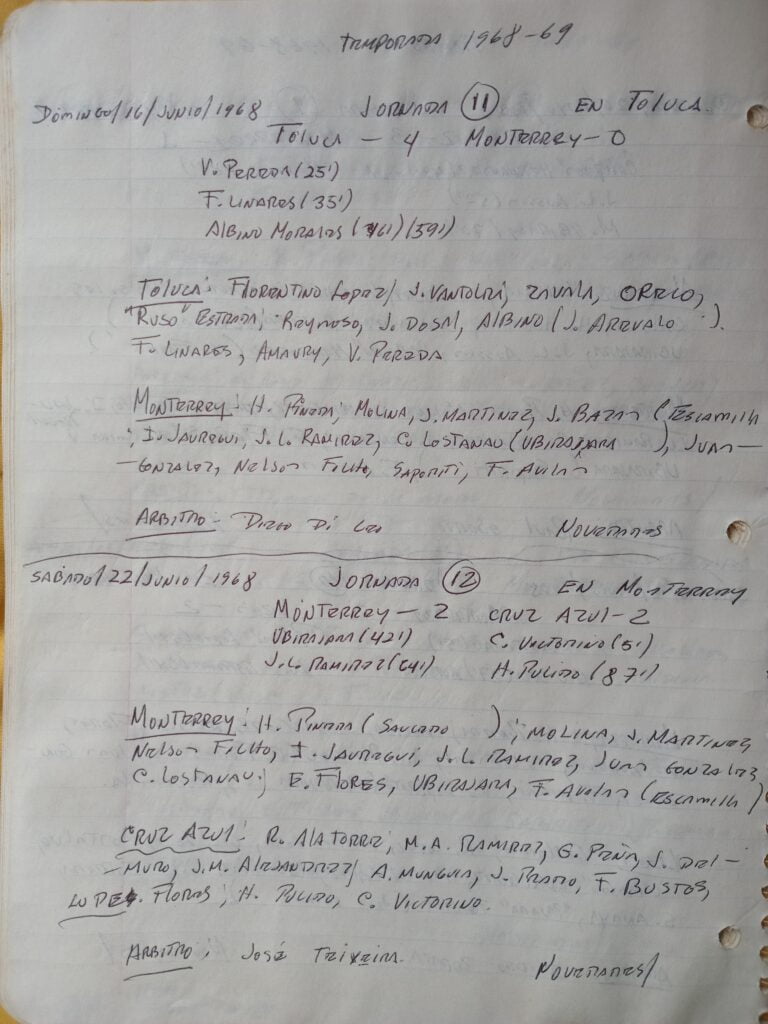 TEMPORADA 1968-69
DOMINGO/16/JUNIO/1968 JORNADA 11 EN TOLUCA.
TOLUCA — 4 MONTERREY — 0
V. PEREDA (25')
F. LINARES (35')
ALBINO MORALES (46') (59')
TOLUCA: FLORENTINO LOPEZ/ J. VANTOLRÁ, ZAVALA, ORECO,
"RUSO" ESTRADA; REYNOSO, J. DOSAL, ALBINO (J. AREVALO ).
F. LINARES, AMAURY, V. PEREDA
MONTERREY: H. PINEDA; MOLINA, J. MARTINEZ, J. BAZAN (ESCAMILLA
; I. JAUREGUI, J.L. RAMIREZ, C. LOSTANAU (UBIRAJARA ), JUAN —
— GONZALEZ, NELSON FILHO, SAPORITI, F. AVILAN
ARBITRO - DIEGO DI LEO NOVEDADES
SABADO/22/JUNIO/1968 JORNADA 12 EN MONTERREY
MONTERREY — 2 CRUZ AZUL - 2
UBIRAJARA (42') C. VICTORINO (5')
J.L. RAMIREZ (64') H. PULIDO (87')
MONTERREY: H. PINEDA (SAUCEDO ); MOLINA, J. MARTINEZ,
NELSON FILHO, I. JAUREGUI, J.L. RAMIREZ, JUAN GONZALEZ,
C. LOSTANAU; E. FLORES, UBIRAJARA, F. AVILAN (ESCAMILLA)
CRUZ AZUL: R. ALATORRE; M.A. RAMIREZ, G. PEÑA, J. DEL —
— MURO, J.M. ALEJANDREZ/ A. MUNGUIA, J. PRADO, F. BUSTOS,
LUPE. FLORES; H. PULIDO, C. VICTORINO.
ARBITRO. JOSÉ TEIXEIRA. NOVEDADES/